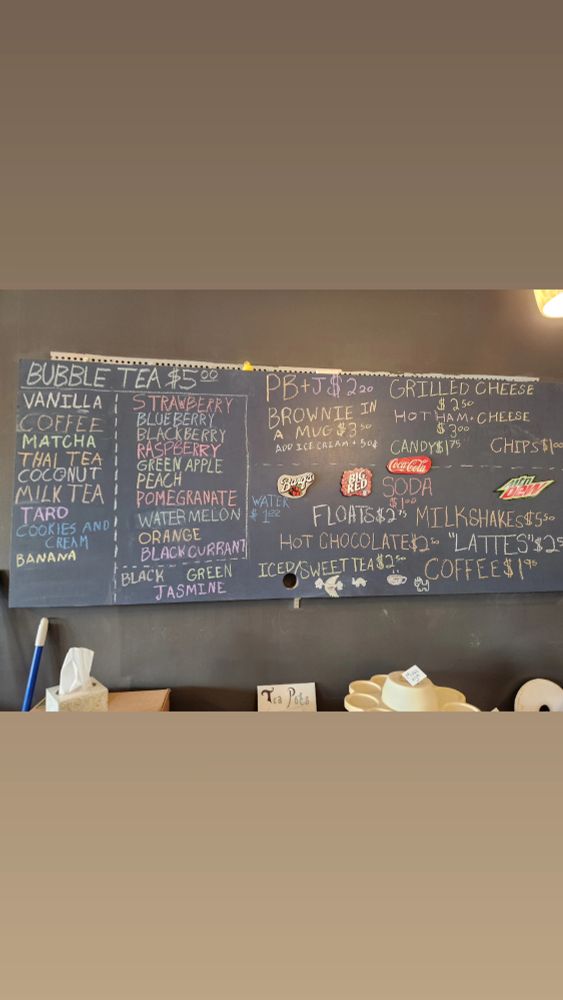 BUBBLE TEA $5.00
VANILLA
COFFEE
MATCHA
THAI TEA
COCONUT
MILK TEA
TARO
COOKIES AND
CREAM
BANANA
STRAWBERRY
BLUEBERRY
BLACKBERRY
RASPBERRY
GREEN APPLE
PEACH
POMEGRANATE
WATERMELON
ORANGE
BLACKCURRANT
BLACK GREEN
JASMINE
PB+J $2.20
BROWNIE IN
A MUG $3.50
ADD ICE CREAM + 50¢
GRILLED CHEESE
$2.50
HOT HAM + CHEESE
$3.00
CANDY $1.75 CHIPS $1.00
Barq's
BIG RED
Coca-Cola
mtn DEW
SODA
$1.00
WATER
$1.00
FLOATS MILKSHAKES $5.50
HOT CHOCOLATE "LATTES"
ICED/SWEET TEA $2.50 COFFEE $1.95
Tea Pots